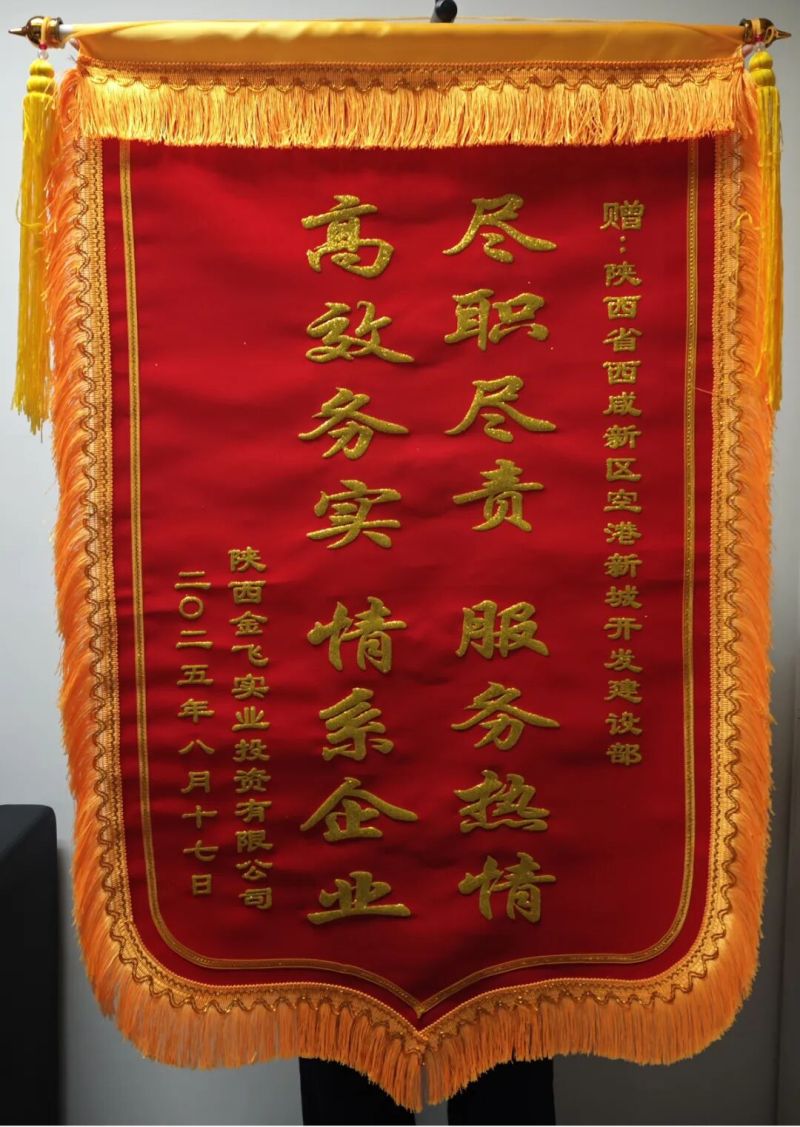 赠：陕西省西咸新区空港新城开发建设部
尽职尽责 服务热情
高效务实 情系企业
陕西金飞实业投资有限公司
二〇二五年八月十七日